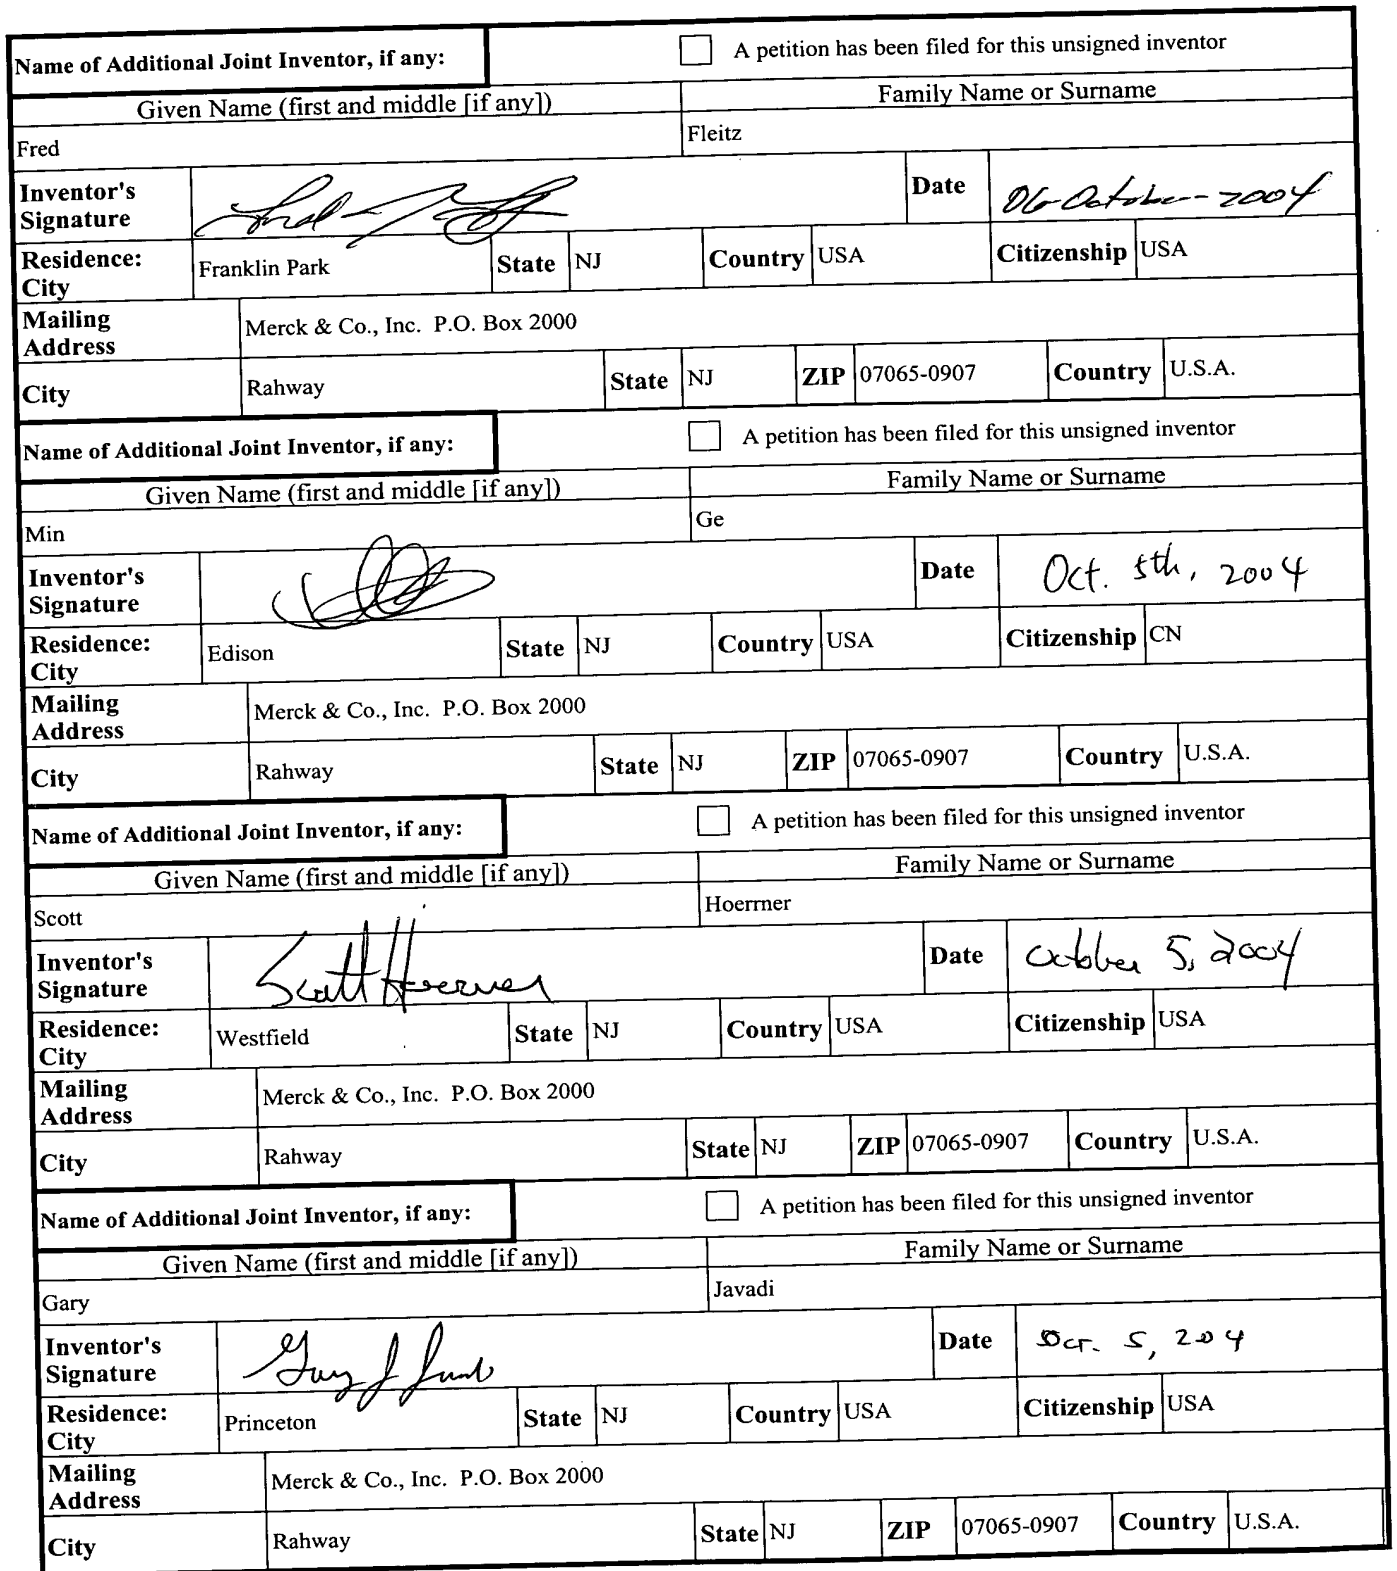 Name of Additional Joint Inventor, if any: A petition has been filed for this unsigned inventor
Given Name (first and middle [if any]) Family Name or Surname
Fred Fleitz
Inventor's Signature Date 06-October-2004
Residence: City Franklin Park State NJ Country USA Citizenship USA
Mailing Address Merck & Co., Inc. P.O. Box 2000
City Rahway State NJ ZIP 07065-0907 Country U.S.A.
Name of Additional Joint Inventor, if any: A petition has been filed for this unsigned inventor
Given Name (first and middle [if any]) Family Name or Surname
Min Ge
Inventor's Signature Date Oct. 5th, 2004
Residence: City Edison State NJ Country USA Citizenship CN
Mailing Address Merck & Co., Inc. P.O. Box 2000
City Rahway State NJ ZIP 07065-0907 Country U.S.A.
Name of Additional Joint Inventor, if any: A petition has been filed for this unsigned inventor
Given Name (first and middle [if any]) Family Name or Surname
Scott Hoerrner
Inventor's Signature Scott Hoerrner Date October 5, 2004
Residence: City Westfield State NJ Country USA Citizenship USA
Mailing Address Merck & Co., Inc. P.O. Box 2000
City Rahway State NJ ZIP 07065-0907 Country U.S.A.
Name of Additional Joint Inventor, if any: A petition has been filed for this unsigned inventor
Given Name (first and middle [if any]) Family Name or Surname
Gary Javadi
Inventor's Signature Gary J Date Oct. 5, 204
Residence: City Princeton State NJ Country USA Citizenship USA
Mailing Address Merck & Co., Inc. P.O. Box 2000
City Rahway State NJ ZIP 07065-0907 Country U.S.A.